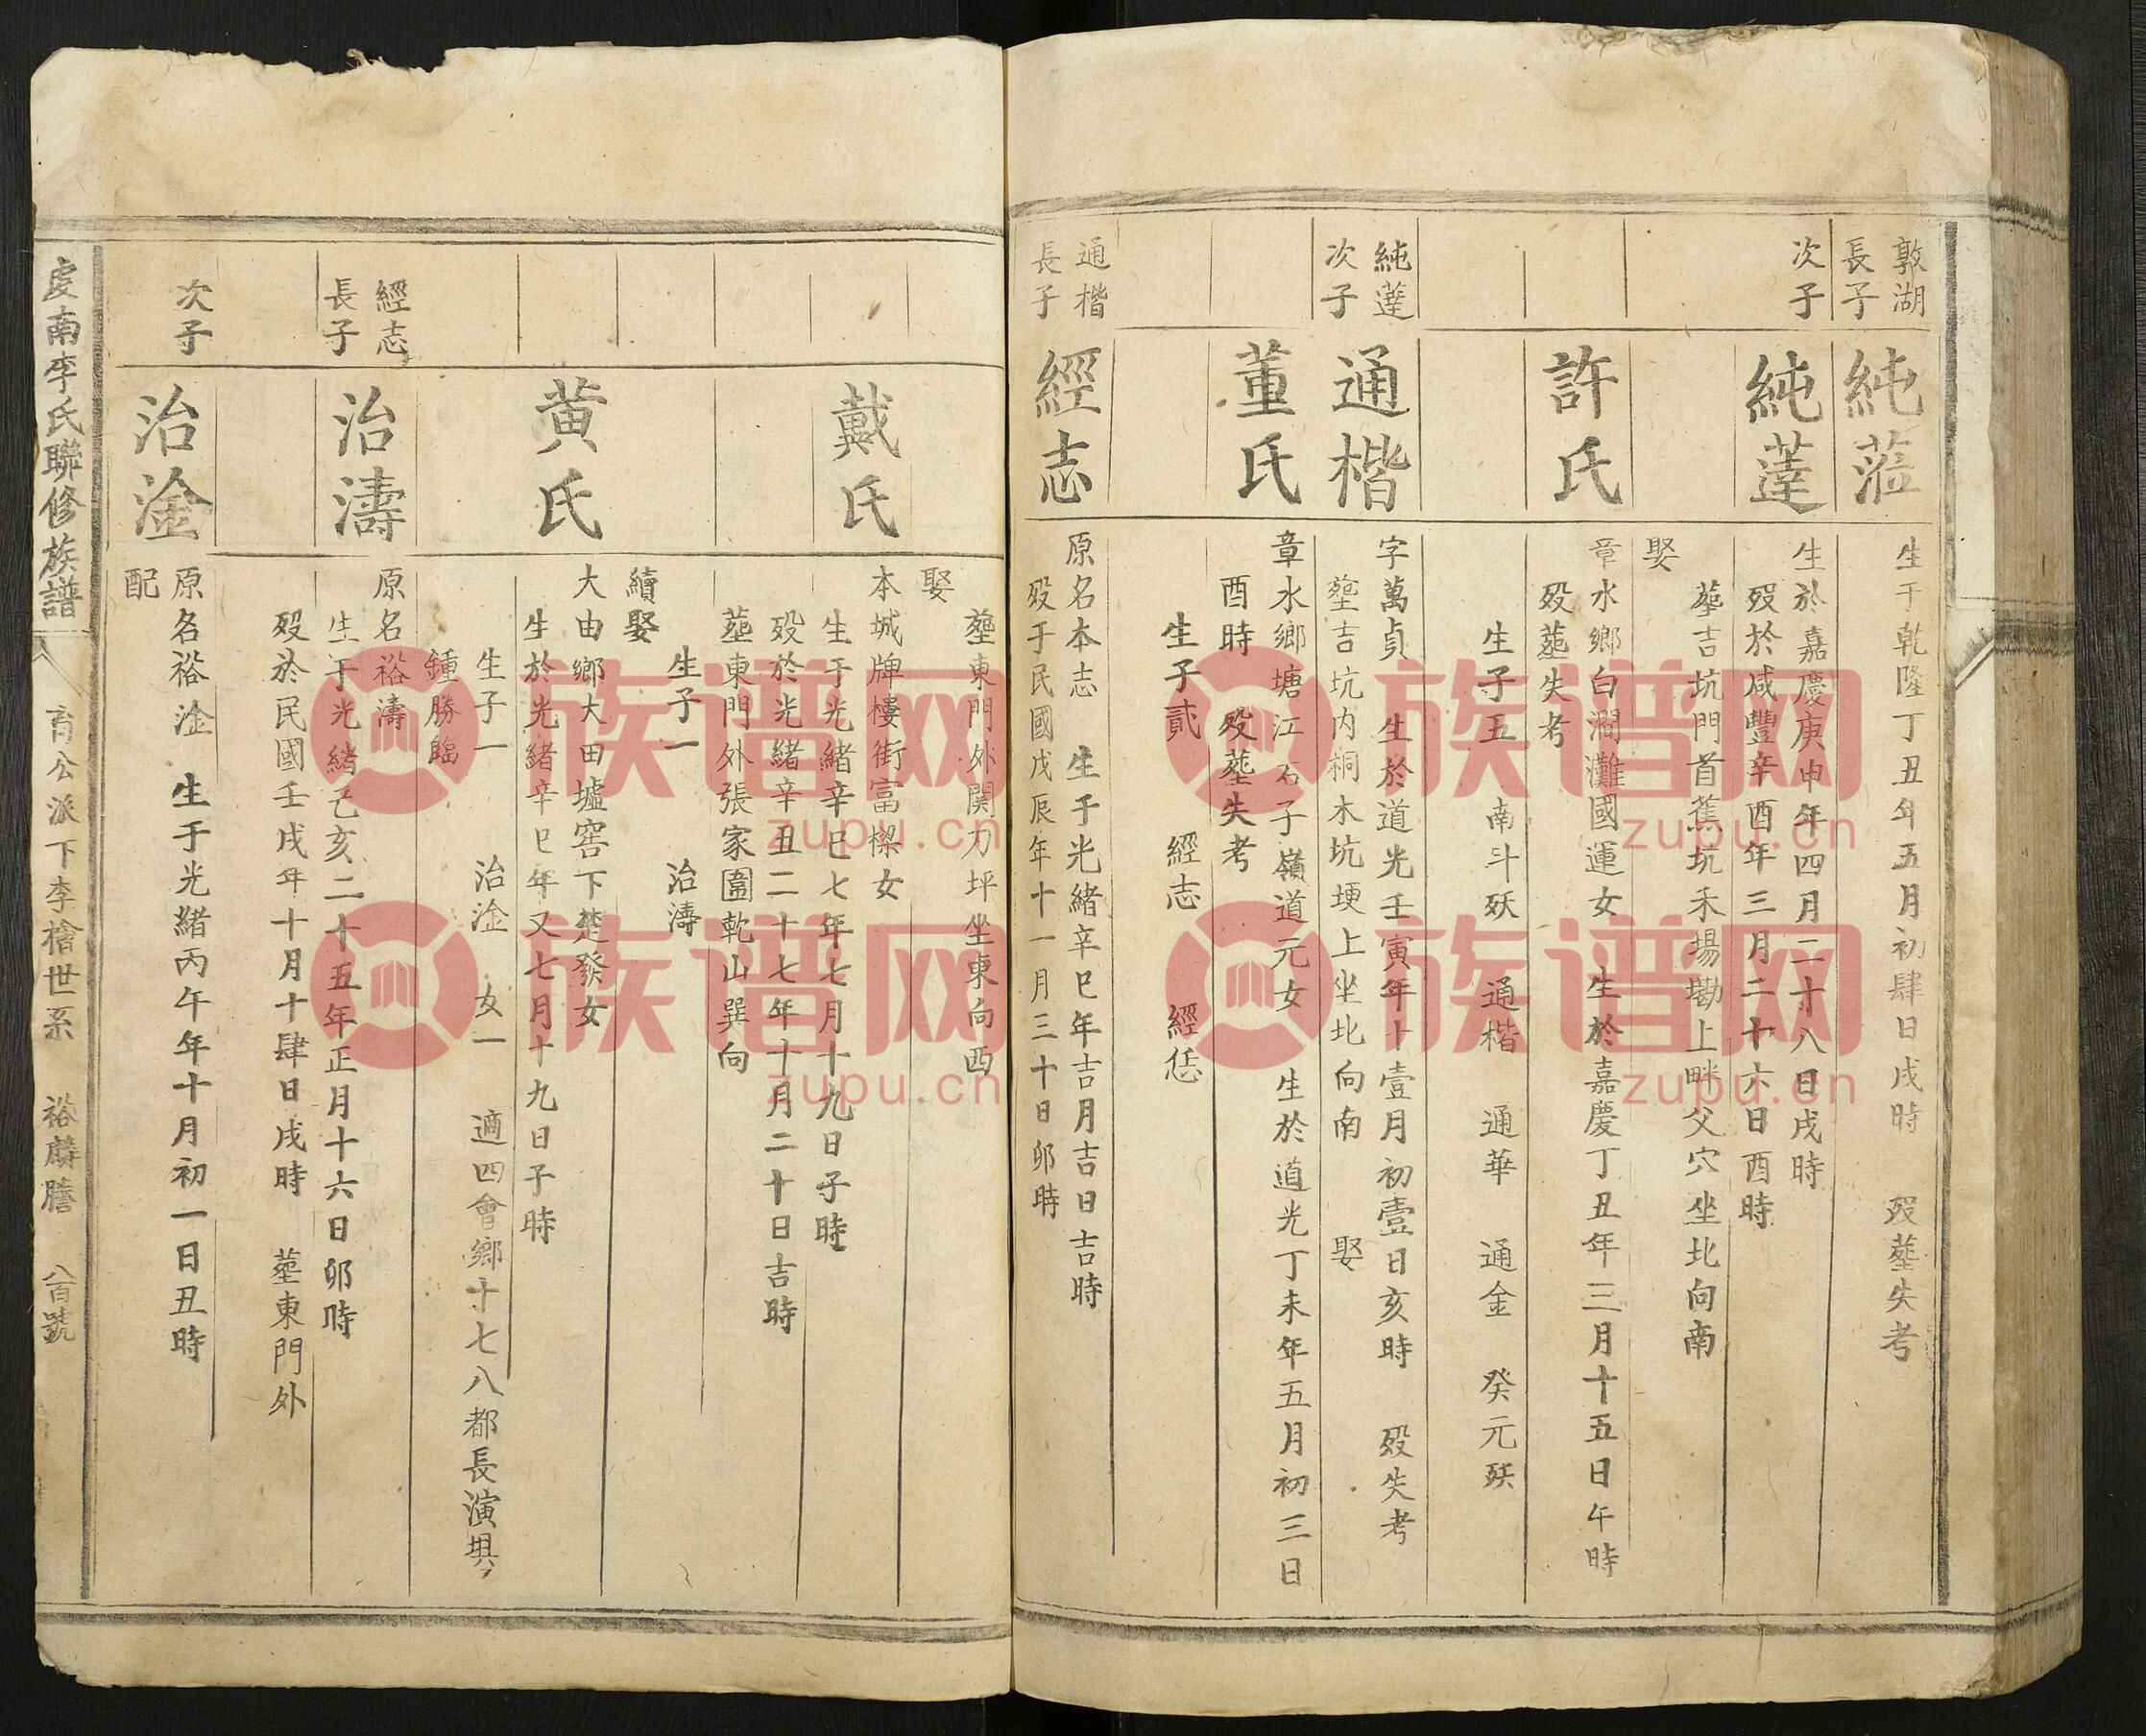 敦湖
長子
純蒞
生于乾隆丁丑年五月初肆日戌時 殁塟失考
次子
純薘
生於嘉慶庚申年四月二十八日戌時
殁於咸豐辛酉年三月二十六日酉時
塟吉坑門首蕉坑禾場墈上畔父穴坐北向南
娶
許氏
章水鄉白澗灘國運女 生於嘉慶丁丑年三月十五日午時
殁塟失考
生子五 南斗殀 通楷 通華 通金 癸元殀
純薘
次子
通楷
字萬貞 生於道光壬寅年十壹月初壹日亥時 殁失考
塟吉坑内桐木坑埂上坐北向南 娶
董氏
章水鄉塘江石子嶺道元女 生於道光丁未年五月初三日
酉時 殁塟失考
生子貳 經志 經恁
通楷
長子
經志
原名本志 生于光緒辛巳年吉月吉日吉時
殁于民國戊辰年十一月三十日卯時
塟東門外関刀坪坐東向西
娶
戴氏
本城牌樓街富樑女
生于光緒辛巳七年七月十九日子時
殁於光緒辛丑二十七年十月二十日吉時
塟東門外張家園乾山巽向
生子一 治濤
續娶
黄氏
大由鄉大田墟窖下楚發女
生於光緒辛巳年又七月十九日子時
生子一 治淦 女一 適四會鄉十七八都長演堪
鍾勝
經志
長子
治濤
原名裕濤
生于光緒己亥二十五年正月十六日卯時
殁於民國壬戌年十月十肆日戌時 塟東門外
次子
治淦
原名裕淦 生于光緒丙午年十月初一日丑時
配
虔南李氏聯修族譜
育公派下李檜世系 裕麟謄 八百號
族谱网
zupu.cn
族谱网
zupu.cn
族谱网
zupu.cn
族谱网
zupu.cn